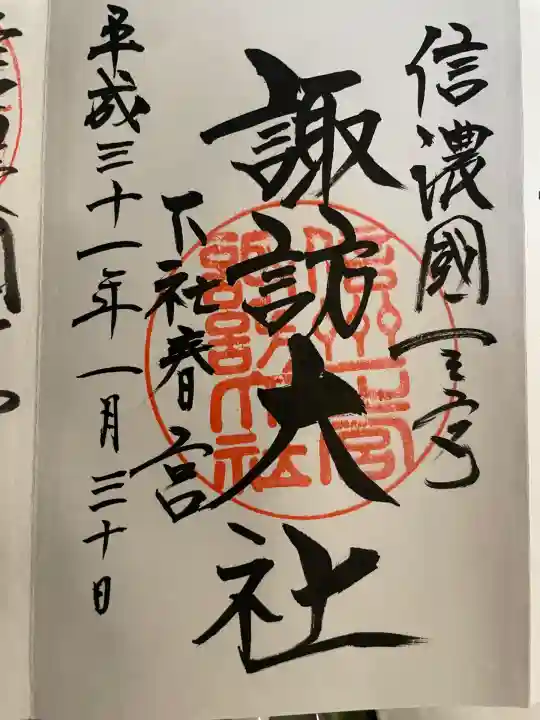 信濃國一之宮
諏訪大社
下社春宮
平成三十一年一月三十日